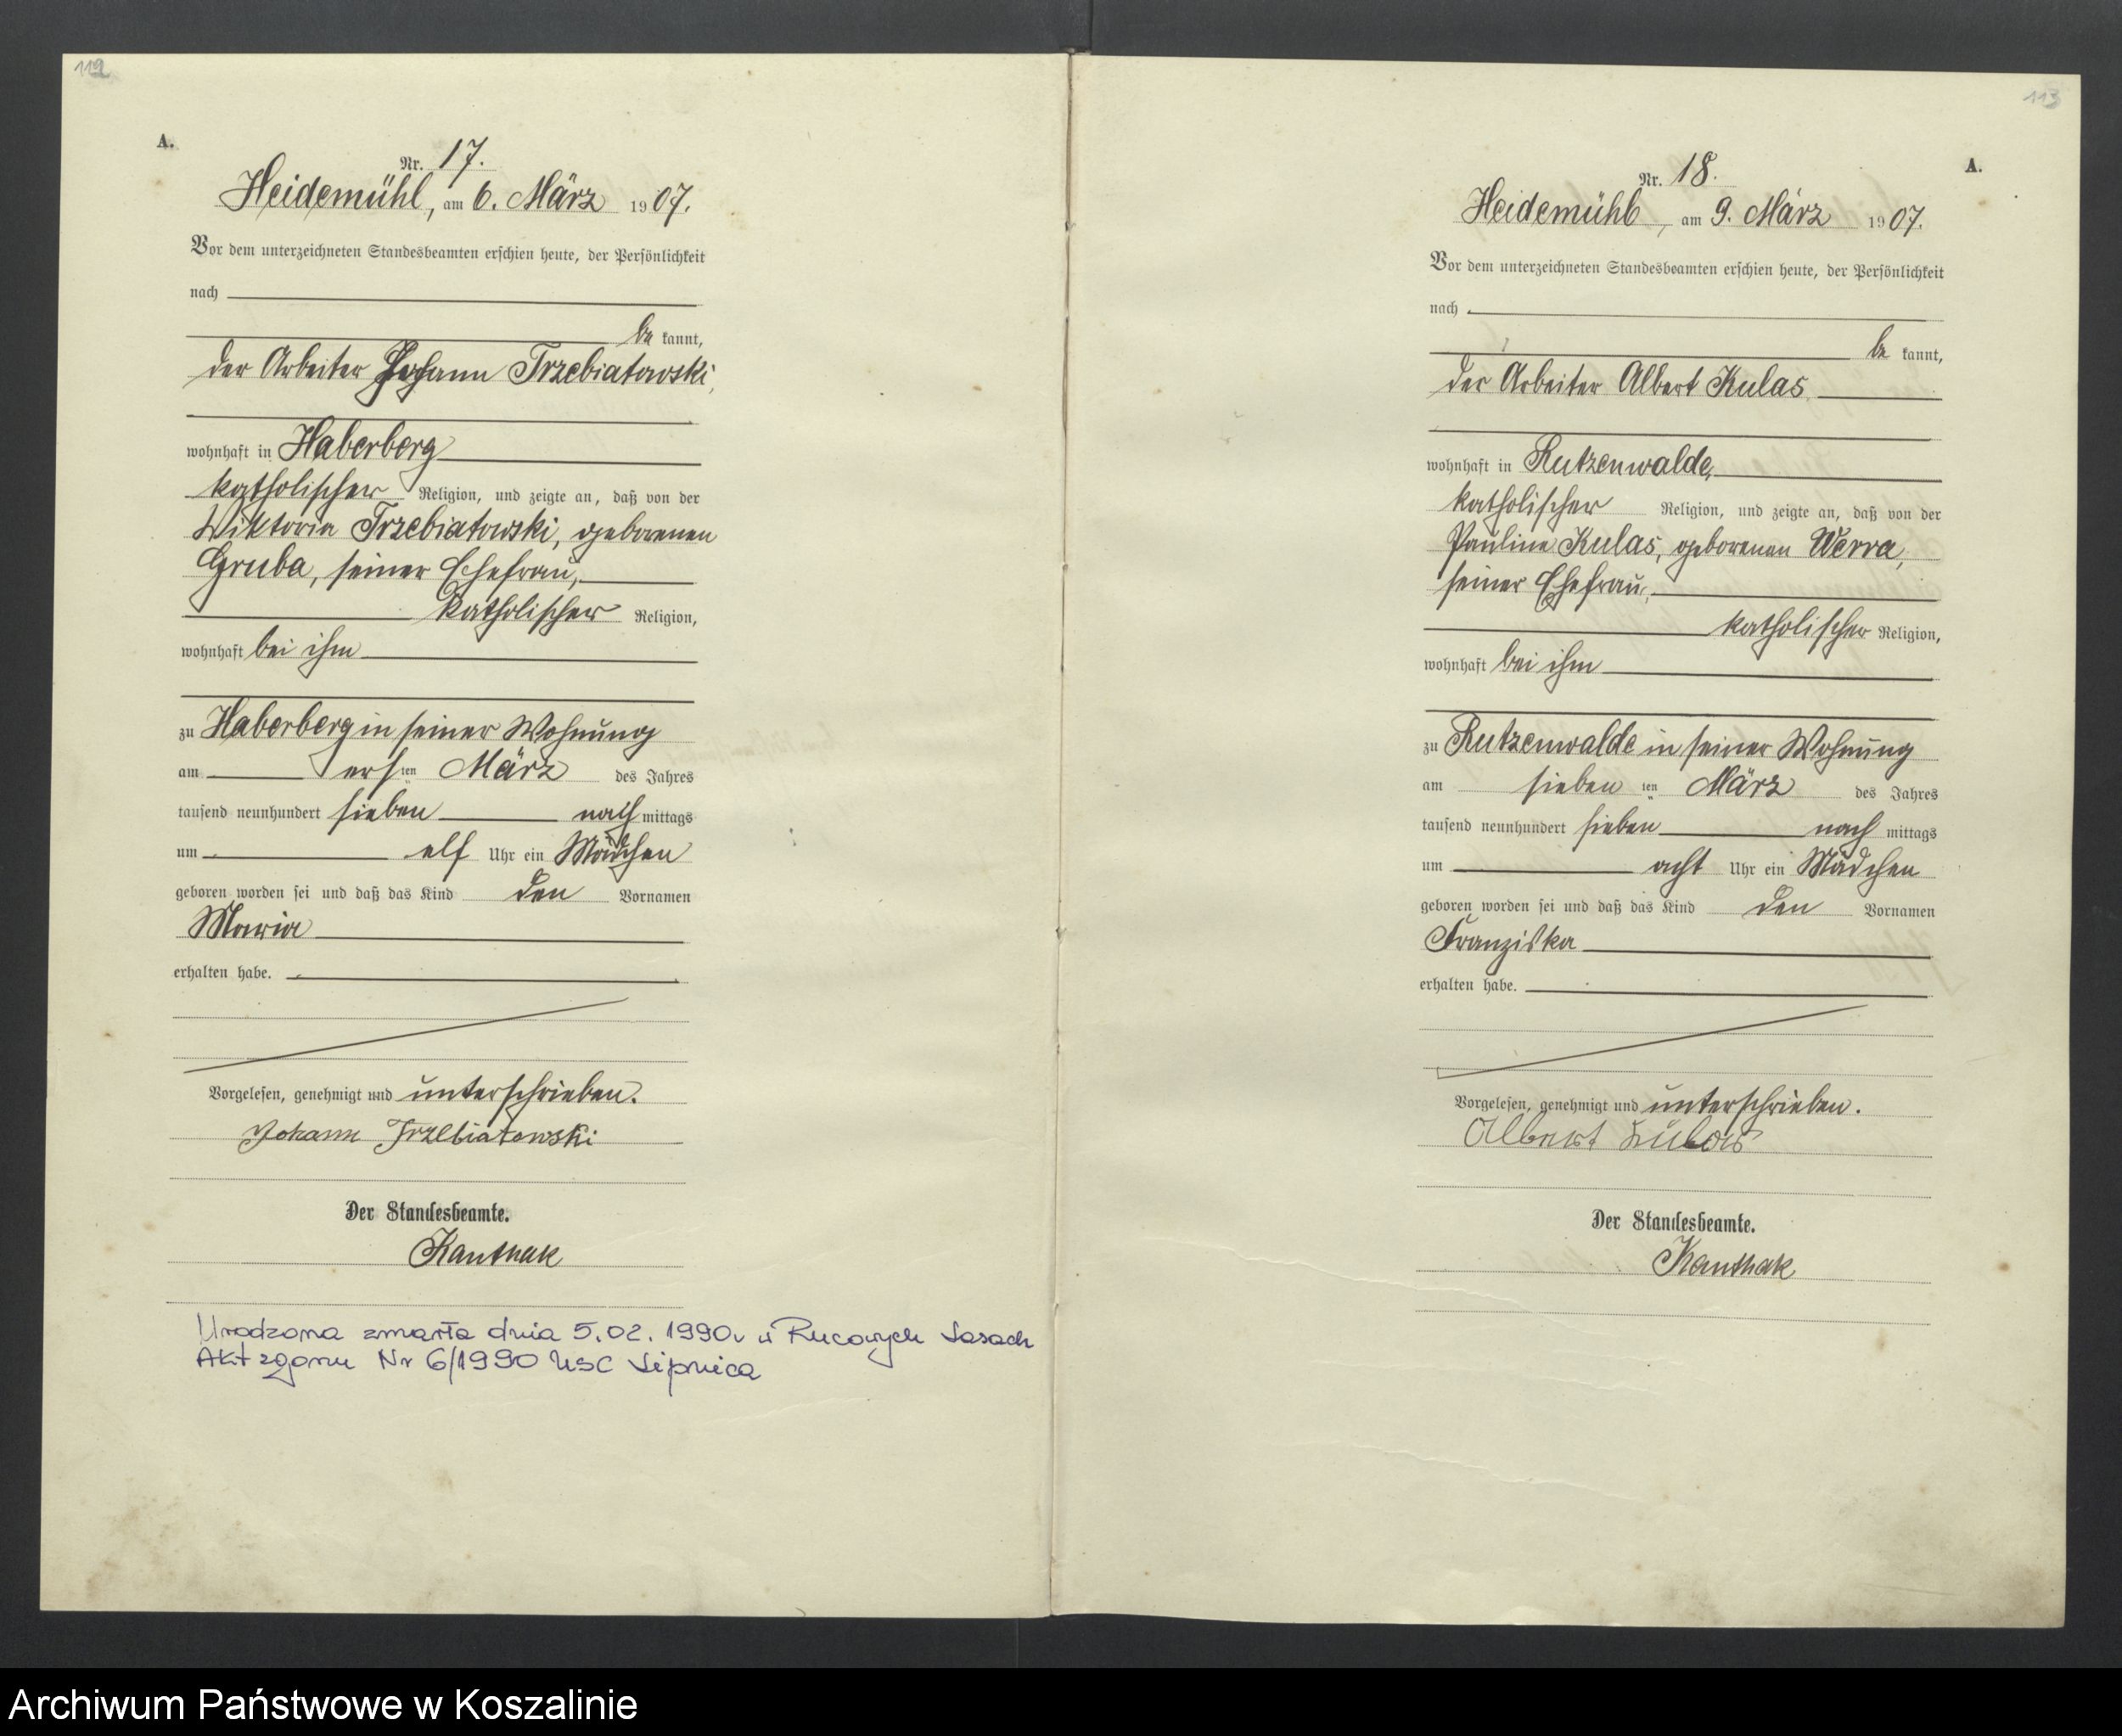 112
A.
Nr. 17.
Heidemühl, am 6. März 1907.
Vor dem unterzeichneten Standesbeamten erschien heute, der Persönlichkeit
nach
be kannt,
der Arbeiter Johann Trzebiatowski,
wohnhaft in Haberberg
katholischer Religion, und zeigte an, daß von der
Wiktoria Trzebiatowski, geborenen
Gruba, seiner Ehefrau,
katholischer Religion,
wohnhaft bei ihm
zu Haberberg in seiner Wohnung
am ersten März des Jahres
tausend neunhundert sieben nachmittags
um elf Uhr ein Mädchen
geboren worden sei und daß das Kind den Vornamen
Maria
erhalten habe.
Vorgelesen, genehmigt und unterschrieben.
Johann Trzebiatowski
Der Standesbeamte.
Kanthak
Urodzona zmarła dnia 5.02.1990 w Rucowych Lasach
Akt zgonu Nr 6/1990 USC Lipnica
113
A.
Nr. 18.
Heidemühl, am 9. März 1907.
Vor dem unterzeichneten Standesbeamten erschien heute, der Persönlichkeit
nach
be kannt,
der Arbeiter Albert Kulas
wohnhaft in Rutzenwalde,
katholischer Religion, und zeigte an, daß von der
Pauline Kulas, geborenen Werra,
seiner Ehefrau,
katholischer Religion,
wohnhaft bei ihm
zu Rutzenwalde in seiner Wohnung
am siebenten März des Jahres
tausend neunhundert sieben nach mittags
um acht Uhr ein Mädchen
geboren worden sei und daß das Kind den Vornamen
Franziska
erhalten habe.
Vorgelesen, genehmigt und unterschrieben.
Albert Kulas
Der Standesbeamte.
Kanthak
Archiwum Państwowe w Koszalinie